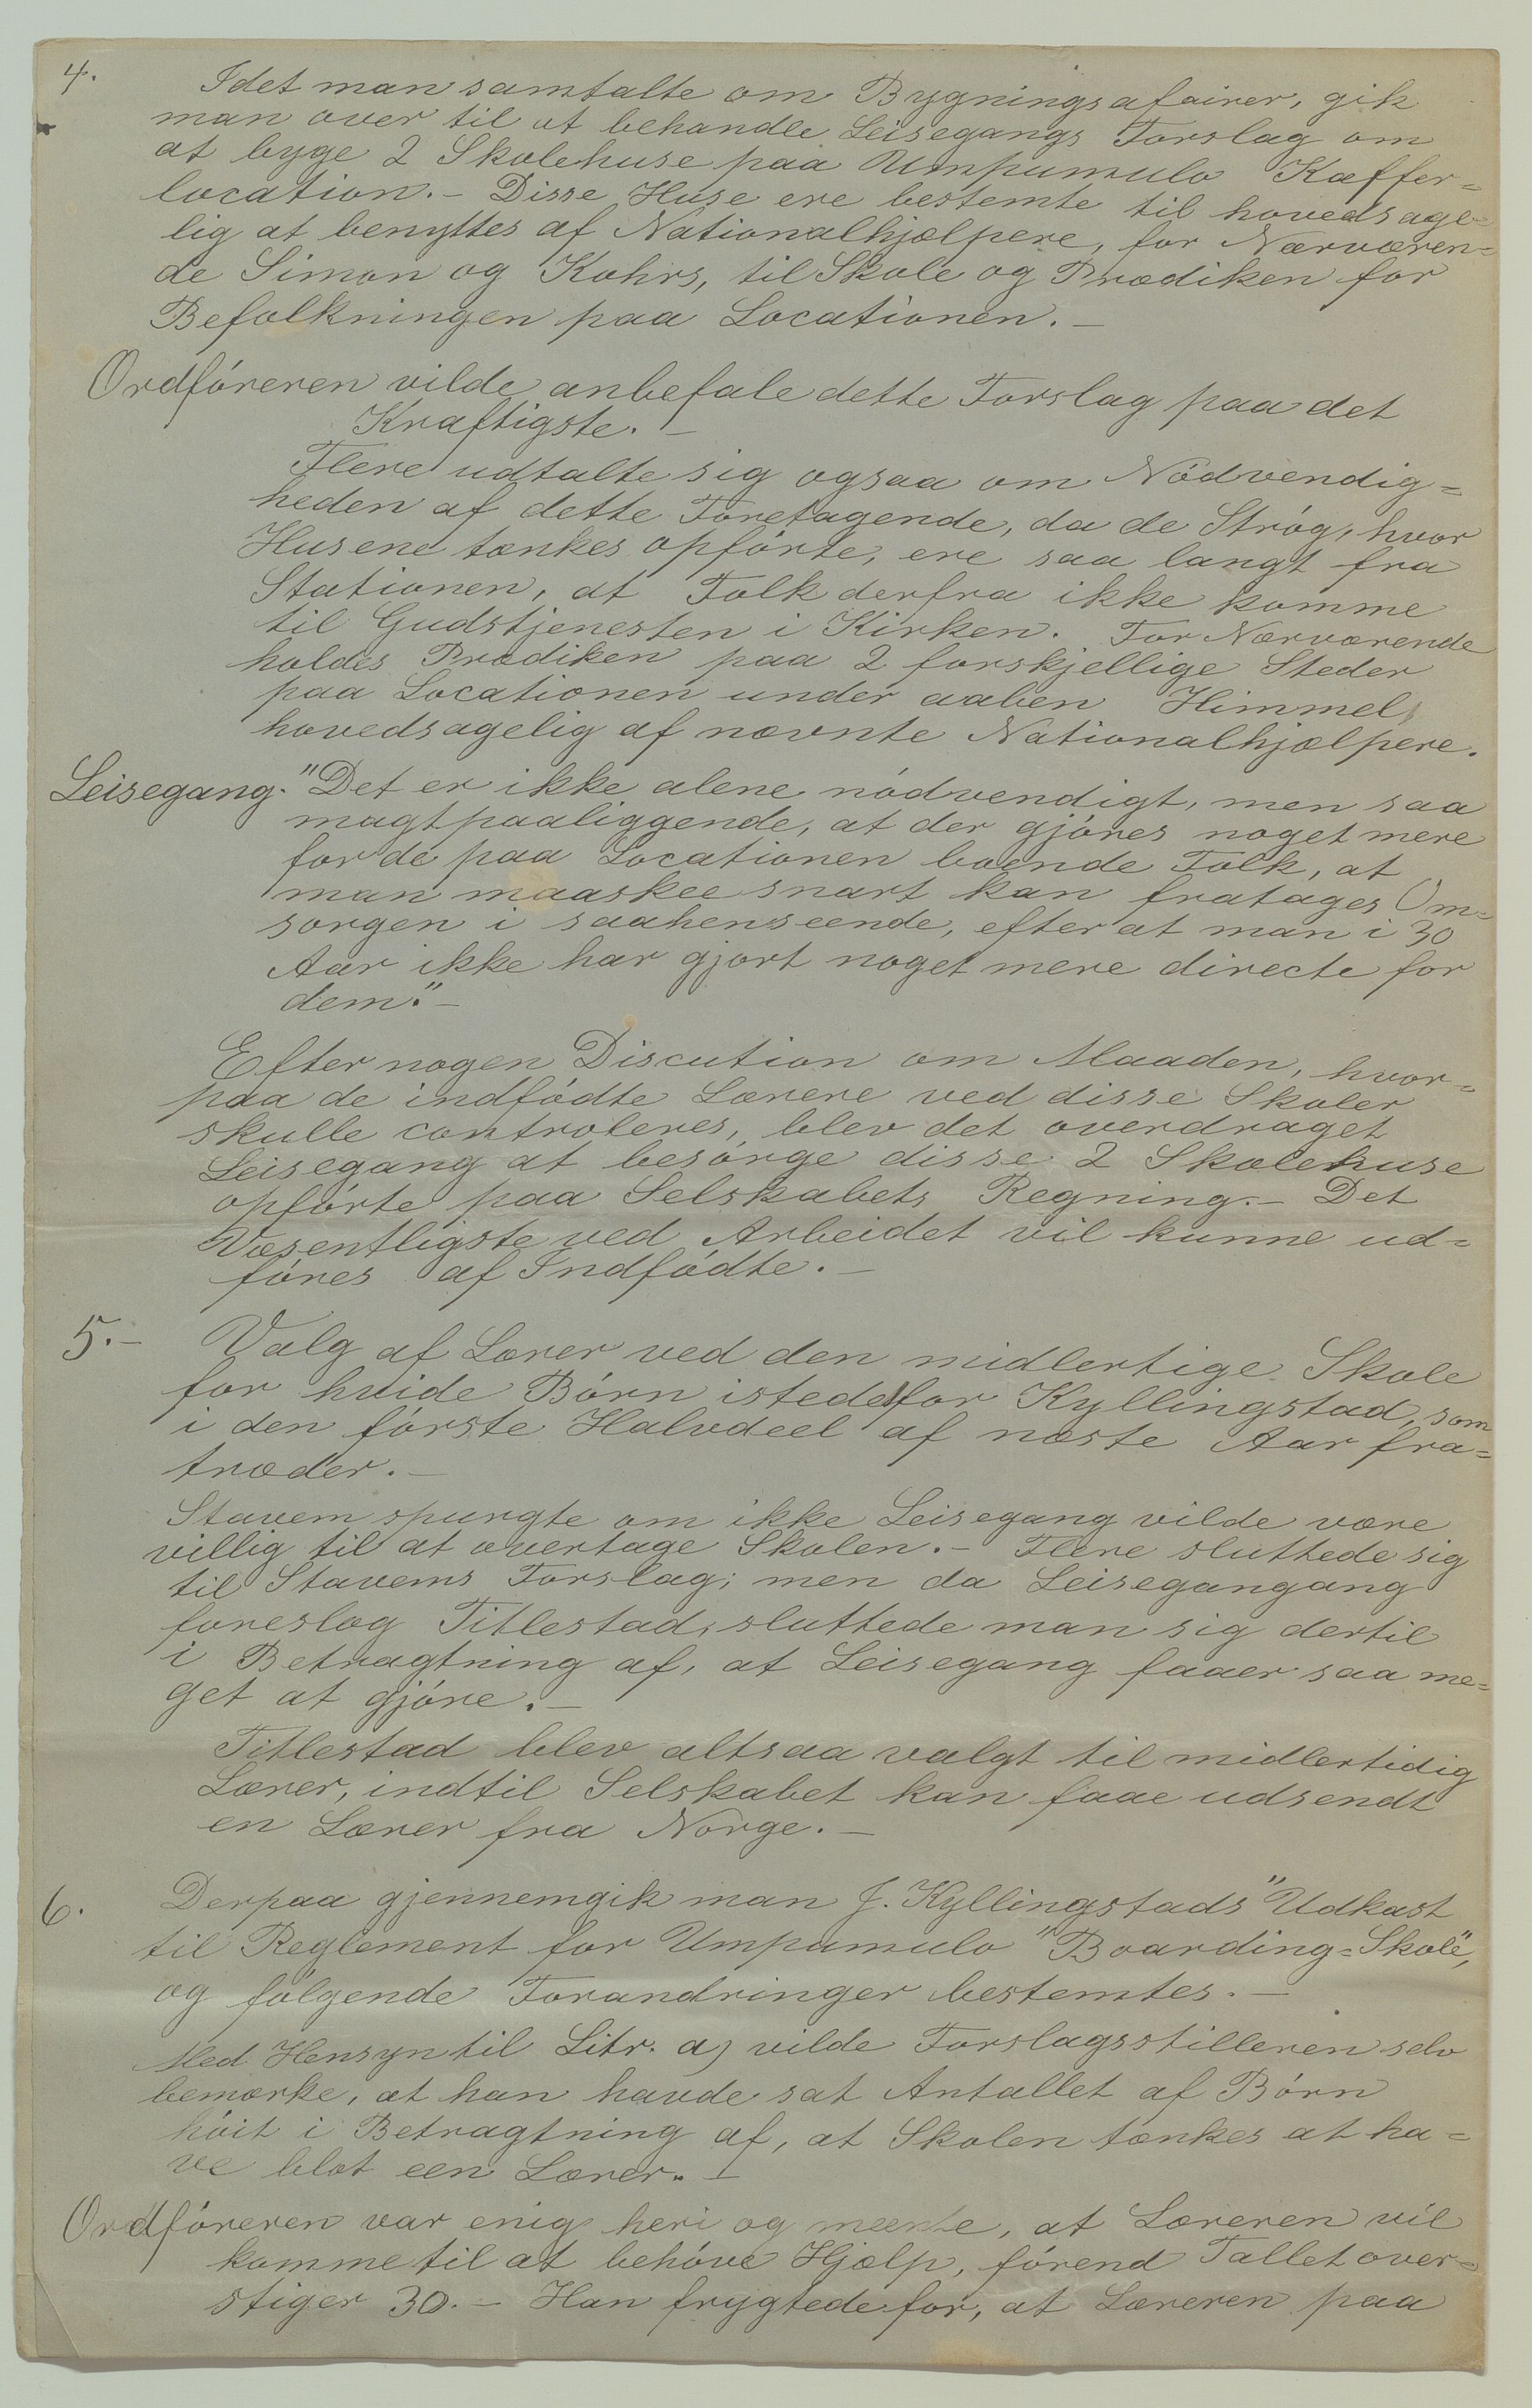 4. Idet man samtalte om Bygningsafairer, gik
man over til at behandle Leisegangs Forslag om
at byge 2 Skolehuse paa Umpumulo Kæffer=
location. - Disse Huse ere bestemte til hovedsage=
lig at benyttes af Nationalhjælpere, for Nærværen=
de Simon og Kohrs, til Skole og Prædiken for
Befolkningen paa Locationen. -
Ordføreren vilde anbefale dette Forslag paa det
Kraftigste. -
Flere udtalte sig ogsaa om Nödvendig=
heden af dette Foretagende, da de Strög, hvor
Husene tænkes opförte, ere saa langt fra
Stationen, at Folk derfra ikke komme
til Gudstjenesten i Kirken. For Nærværende
holdes Prædiken paa 2 forskjellige Steder
paa Locationen under aaben Himmel,
hovedsagelig af nævnte Nationalhjælpere.
Leisegang. "Det er ikke alene nödvendigt, men saa
magtpaaliggende, at der gjöres noget mere
for de paa Locationen boende Folk, at
man maaskee snart kan fratages Om=
sorgen i saahenseende, efter at man i 30
Aar ikke har gjort noget mere directe for
dem." -
Efter nogen Discution om Maaden, hvor=
paa de indfödte Lærere ved disse Skoler
skulle controleres, blev det overdraget
Leisegang at besörge disse 2 Skolehuse
opförte paa Selskabets Regning. - Det
Væsentligste ved Arbeidet vil kunne ud=
föres af Indfödte. -
5. - Valg af Lærer ved den midlertige Skole
for hvide Börn istedetfor Kyllingstad, som
i den förste Halvdeel af næste Aar fra=
træder. -
Stavem spurgte om ikke Leisegang vilde være
villig til at overtage Skolen. - Flere sluttede sig
til Stavems Forslag; men da Leisegangang
foreslog Titlestad, sluttede man sig dertil
i Betragtning af, at Leisegang faaer saa me=
get at gjöre. -
Titlestad blev altsaa valgt til midlertidig
Lærer, indtil Selskabet kan faae udsendt
en Lærer fra Norge. -
6. Derpaa gjennemgik man J. Kyllingstads "Udkast
til Reglement for Umpumulo "Boarding=Skole",
og fölgende Forandringer bestemtes. -
Med Hensyn til Litr. a) vilde Forslagsstilleren selv
bemærke, at han havde sat Antallet af Börn
höit i Betragtning af, at Skolen tænkes at ha=
ve blot een Lærer. -
Ordföreren var enig heri og meente, at Læreren vil
komme til at behöve Hjælp, förend Tallet over=
stiger 30. - Han frygtede for, at Læreren paa